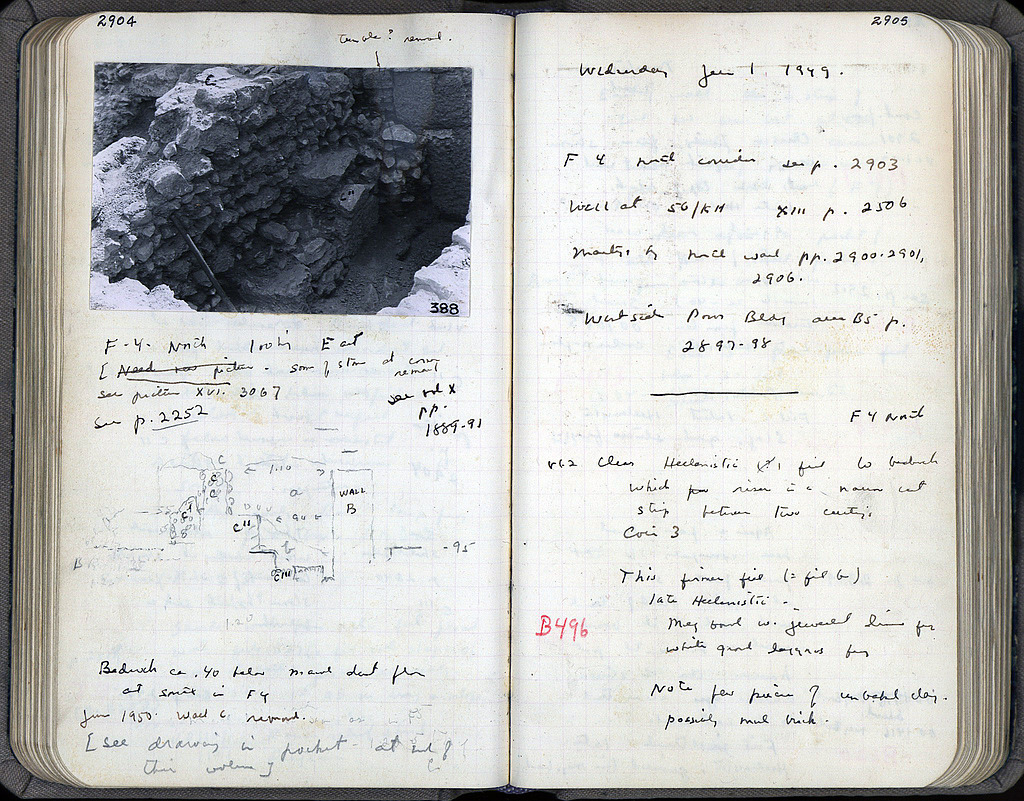 2904
removed.
388
F-4- North looking East
[ Need new picture - some of stone at corner
removed
see picture XVI. 3067
see p. 2252
see vol X
pp.
1889-91
C
1.10
C
C
a
WALL
B
C'
C"
.90
b
-95
C'''
1.20
Bedrock ca .40 below marl dirt floor
at south in F4
June 1950. Wall C removed.
[see drawing in pocket - at end of
this volume]
2905
Wednesday June 1, 1949.
F 4 north corridor see p. 2903
Wall at 56/KH XIII p. 2506
north wall pp. 2900-2901,
2906.
West side Poros Bldg over B5 p.
2897-98
F 4 North
Clear Hellenistic fill to bedrock
which rises in a narrow
strip between two cuttings
Coin 3
This fill (= fill b)
late Hellenistic.
B496
Meg bowl w. jeweled
white ground lagynos
Note few pieces of unbaked clay.
possibly mud brick.